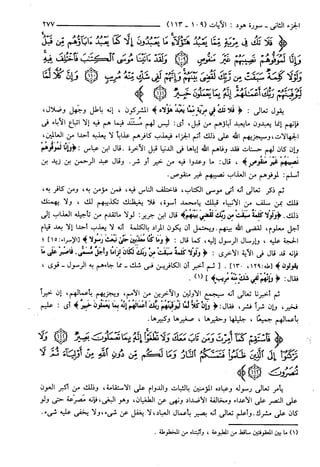 الجزء الثانى ـ سورة هود : الآيات (١٠٩ ـ ١١٣) ٢٧٧
﴿ فَلَا تَكُ فِي مِرْيَةٍ مِّمَّا يَعْبُدُ هَٰؤُلَاءِ مَا يَعْبُدُونَ إِلَّا كَمَا يَعْبُدُ آبَاؤُهُم مِّن قَبْلُ
وَإِنَّا لَمُوَفُّوهُمْ نَصِيبَهُمْ غَيْرَ مَنقُوصٍ ﴿١٠٩﴾ وَلَقَدْ آتَيْنَا مُوسَى الْكِتَابَ فَاخْتُلِفَ فِيهِ
وَلَوْلَا كَلِمَةٌ سَبَقَتْ مِن رَّبِّكَ لَقُضِيَ بَيْنَهُمْ وَإِنَّهُمْ لَفِي شَكٍّ مِّنْهُ مُرِيبٍ ﴿١١٠﴾ وَإِنَّ كُلًّا
لَّمَّا لَيُوَفِّيَنَّهُمْ رَبُّكَ أَعْمَالَهُمْ إِنَّهُ بِمَا يَعْمَلُونَ خَبِيرٌ ﴿١١١﴾ ﴾
يقول تعالى : ﴿ فَلَا تَكُ فِي مِرْيَةٍ مِّمَّا يَعْبُدُ هَٰؤُلَاءِ ﴾ المشركون ، إنه باطل وجهل وضلال،
فإنهم إنما يعبدون مايعبد آباؤهم من قبل، أى: ليس لهم مُستَند فيما هم فيه إلا اتباع الآباء فى
الجهالات، وسيجزيهم الله على ذلك أتم الجزاء فيعذب كافرهم عذاباً لا يعذبه أحدا من العالمين،
وإن كان لهم حسنات فقد وفاهم الله إياها فى الدنيا قبل الآخرة . قال ابن عباس : ﴿ وَإِنَّا لَمُوَفُّوهُمْ
نَصِيبَهُمْ غَيْرَ مَنقُوصٍ ﴾ ، قال: ما وعدوا فيه من خير أو شر. وقال عبد الرحمن بن زيد بن
أسلم: لموفوهم من العذاب نصيبهم غير منقوص.
ثم ذكر تعالى أنه آتى موسى الكتاب، فاختلف الناس فيه، فمن مؤمن به، ومن كافر به،
فلك بمن سلف من الأنبياء قبلك يامحمد أسوة، فلا يغيظنك تكذيبهم لك ، ولا يهمنك
ذلك. ﴿ وَلَوْلَا كَلِمَةٌ سَبَقَتْ مِن رَّبِّكَ لَقُضِيَ بَيْنَهُمْ ﴾ قال ابن جرير: لولا ماتقدم من تأجيله العذاب إلى
أجل معلوم، لقضى الله بينهم. ويحتمل أن يكون المراد بالكلمة أنه لا يعذب أحدا إلا بعد قيام
الحجة عليه ، وإرسال الرسول إليه، كما قال : ﴿ وَمَا كُنَّا مُعَذِّبِينَ حَتَّىٰ نَبْعَثَ رَسُولًا ﴾ [الإسراء: ١٥] ؛
فإنه قد قال فى الآية الأخرى : ﴿ وَلَوْلَا كَلِمَةٌ سَبَقَتْ مِن رَّبِّكَ لَكَانَ لِزَامًا وَأَجَلٌ مُّسَمًّى. فَاصْبِرْ عَلَىٰ مَا
يَقُولُونَ ﴾ [طه: ١٢٩، ١٣٠] . [ ثم أخبر أن الكافرين فى شك ـ مما جاءهم به الرسول ـ قوى ،
فقال: ﴿ وَإِنَّهُمْ لَفِي شَكٍّ مِّنْهُ مُرِيبٍ ﴾ ] (١) .
ثم أخبرنا تعالى أنه سيجمع الأولين والآخرين من الأمم، ويجزيهم بأعمالهم، إن خيراً
فخير، وإن شراً فشر، فقال: ﴿ وَإِنَّ كُلًّا لَّمَّا لَيُوَفِّيَنَّهُمْ رَبُّكَ أَعْمَالَهُمْ إِنَّهُ بِمَا يَعْمَلُونَ خَبِيرٌ ﴾ أى : عليم
بأعمالهم جميعًا ، جليلها وحقيرها ، صغيرها وكبيرها.
﴿ فَاسْتَقِمْ كَمَا أُمِرْتَ وَمَن تَابَ مَعَكَ وَلَا تَطْغَوْا إِنَّهُ بِمَا تَعْمَلُونَ بَصِيرٌ ﴿١١٢﴾ وَلَا
تَرْكَنُوا إِلَى الَّذِينَ ظَلَمُوا فَتَمَسَّكُمُ النَّارُ وَمَا لَكُم مِّن دُونِ اللَّهِ مِنْ أَوْلِيَاءَ ثُمَّ لَا
تُنصَرُونَ ﴿١١٣﴾ ﴾
يأمر تعالى رسوله وعباده المؤمنين بالثبات والدوام على الاستقامة، وذلك من أكبر العون
على النصر على الأعداء ومخالفة الأضداد ونهى عن الطغيان، وهو البغى، فإنه مَصرعة حتى ولو
كان على مشرك. وأعلم تعالى أنه بصير بأعمال العباد، لا يغفل عن شىء، ولا يخفى عليه شىء.
(١) ما بين المعقوفين ساقط من المطبوعة ، وأثبتناه من المخطوطة .